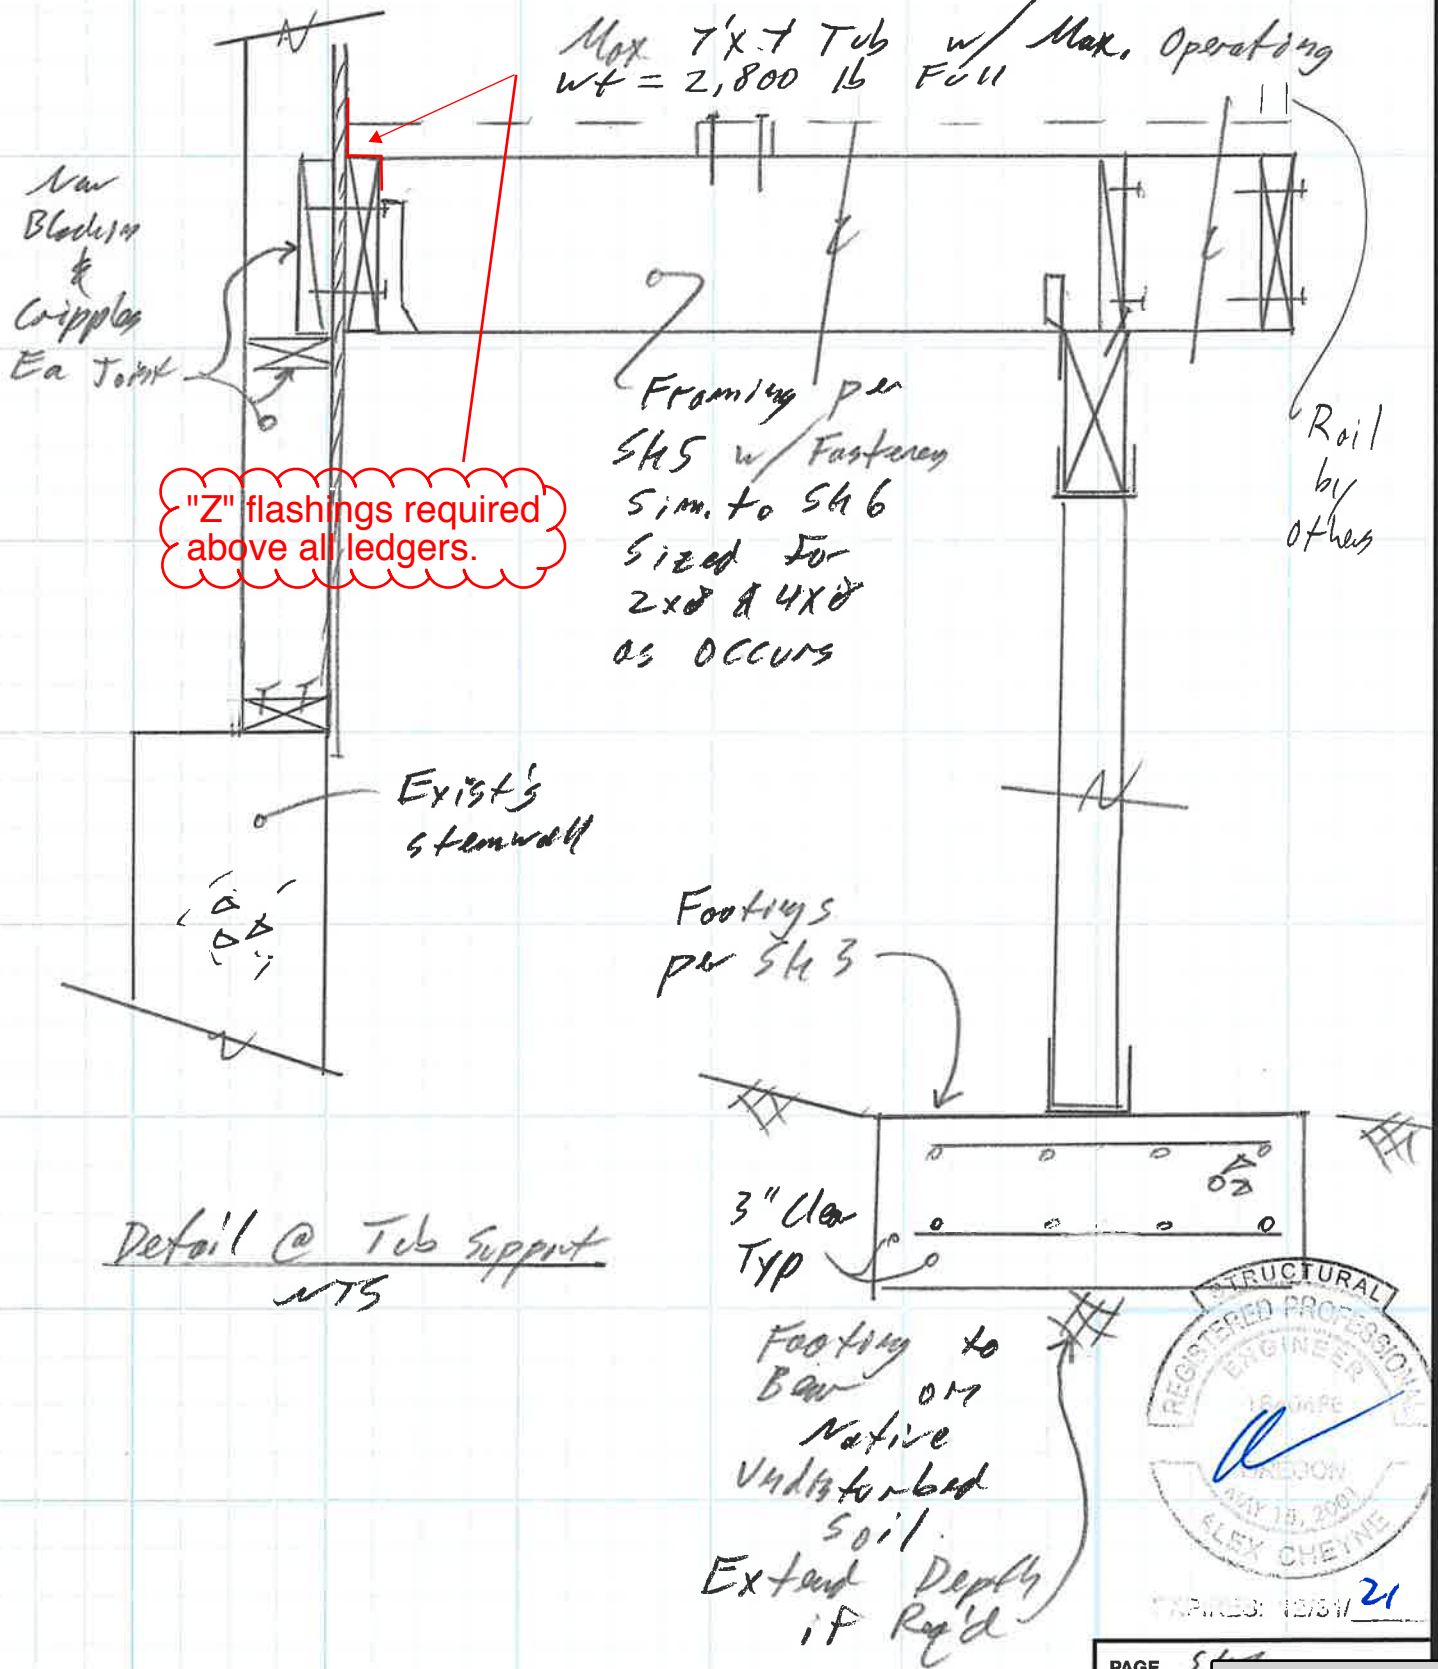 Max 7'x7' Tub w/ Max. Operating
wt = 2,800 lb Full
New
Blocking
&
Cripples
Ea Joist
"Z" flashings required
above all ledgers.
Framing per
Sh5 w/ Fasteners
Sim. to Sh 6
Sized For
2x8 & 4x8
as occurs
Rail
by
others
Exist'g
stemwall
Footings
per Sh 3
3" Clear
Typ
Detail @ Tub Support
NTS
Footing to
Bear on
Native
Undisturbed
Soil.
Extend Depth
if Req'd
STRUCTURAL
REGISTERED PROFESSIONAL
ENGINEER
OREGON
MAY 15, 2001
ALEX CHEYNE
EXPIRES: 12/31/21
PAGE